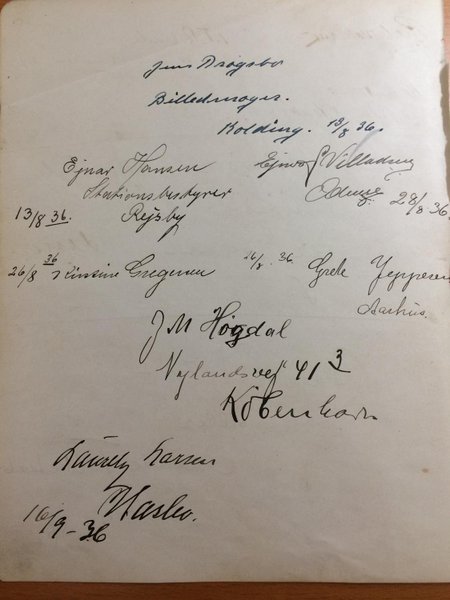 Jens Drøgsbo
Billedmager.
Kolding. 13/8 36.
Ejnar Hansen
Stationsbestyrer
13/8 36. Rejsby
Villadsen
Odense 28/8 36.
26/8 36 Gregersen
26/8. 36. Grete Jeppesen
Aarhus.
J M Høgdal
Nylandsvej 41 3
København
Lauritz Larsen
16/9-36